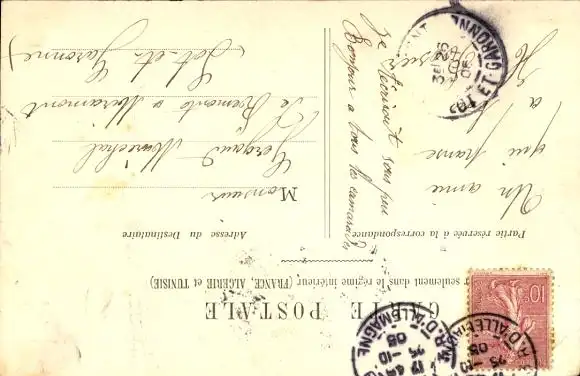 CARTE POSTALE
seulement dans le régime intérieur (FRANCE, ALGÉRIE et TUNISIE)
Partie réservée à la correspondance
Adresse du Destinataire
Un ami
qui pense
à
Je t'écrirait sous peu
Bonjour a tous les camarades
Monsieur
Maréchal
à Miramont
Lot-et-Garonne)
ET-GARONNE
10
R. D'ALLEMAGNE
25-10
05
R. D'ALLEMAGNE
25-10
05